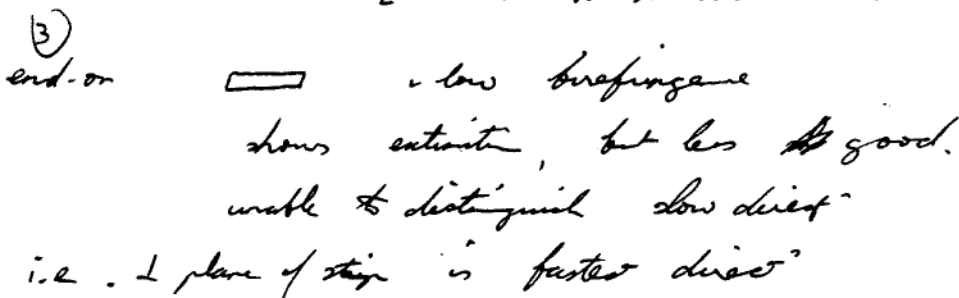 ③
end-on v low birefringence
shows extinction, but less good.
unable to distinguish slow directⁿ
i.e. ⊥ plane of strip is fastest directⁿ